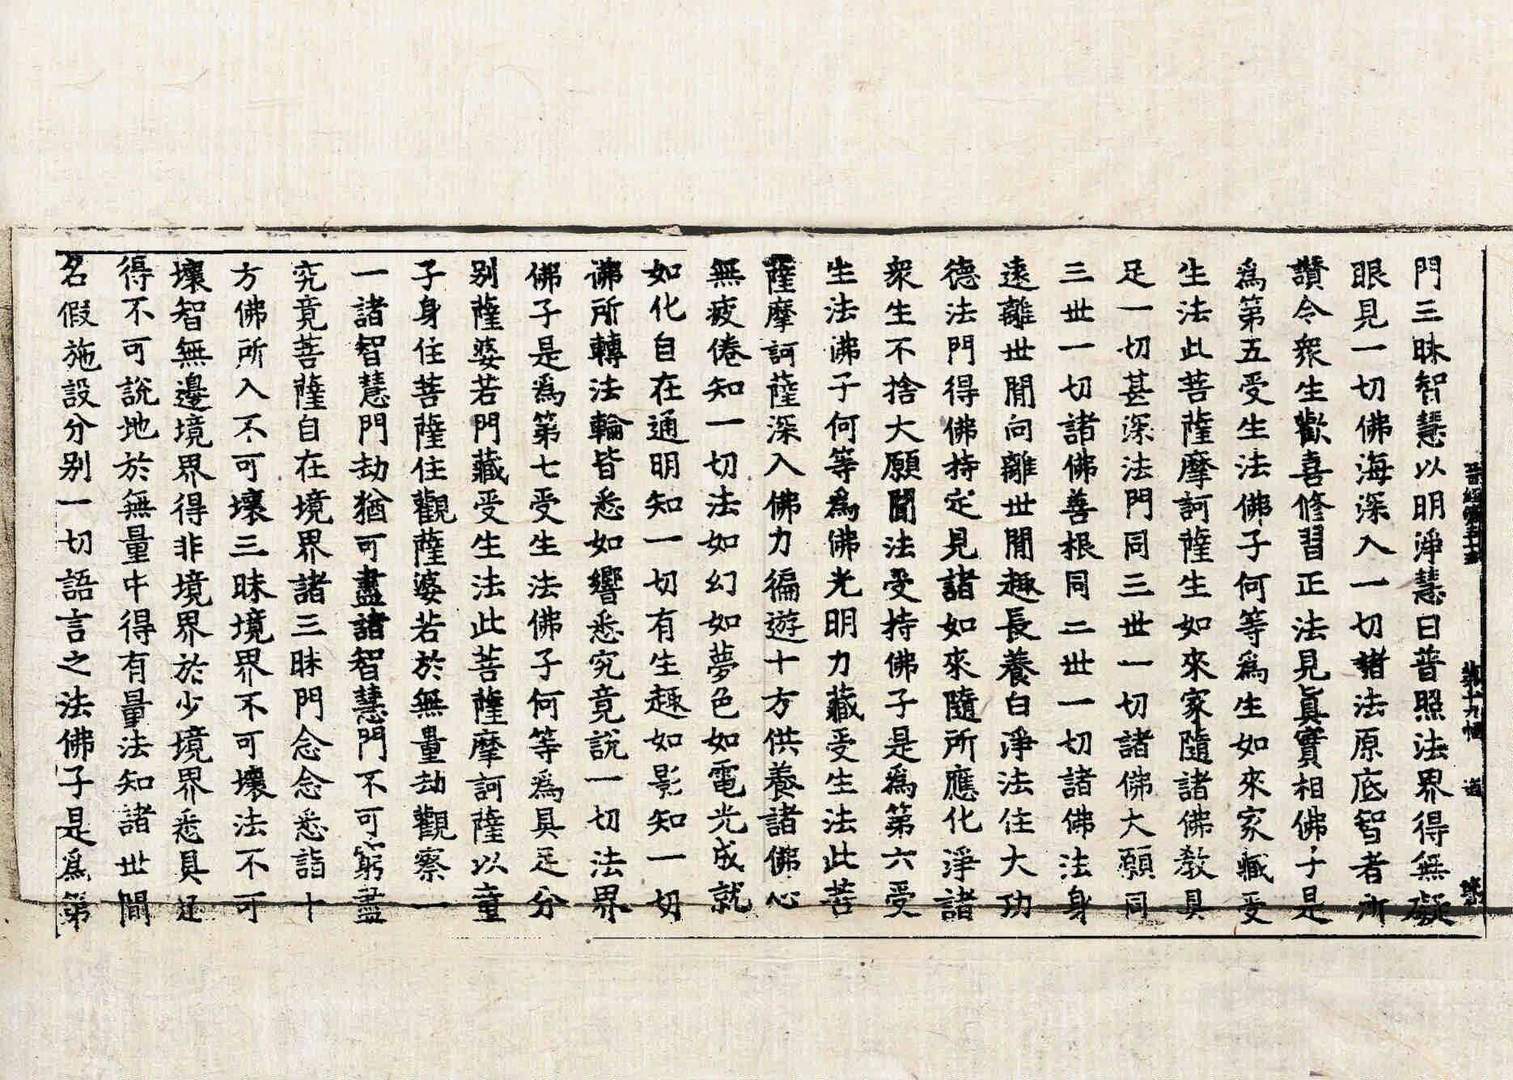 門三昧智慧以明淨慧日普照法界得無礙
眼見一切佛海深入一切諸法原底智者所
讃令衆生歡喜修習正法見眞實相佛子是
爲第五受生法佛子何等爲生如來家藏受
生法此菩薩摩訶薩生如來家隨諸佛教具
足一切甚深法門同三世一切諸佛大願同
三世一切諸佛善根同二世一切諸佛法身
遠離世間向離世間趣長養白淨法住大功
德法門得佛持定見諸如來隨所應化淨諸
衆生不捨大願聞法受持佛子是爲第六受
生法佛子何等爲佛光明力藏受生法此菩
薩摩訶薩深入佛力徧遊十方供養諸佛心
無疲倦知一切法如幻如夢色如電光成就
如化自在通明知一切有生趣如影知一切
佛所轉法輪皆悉如響悉究竟說一切法界
佛子是爲第七受生法佛子何等爲具足分
別薩婆若門藏受生法此菩薩摩訶薩以童
子身住菩薩住觀薩婆若於無量劫觀察一
一諸智慧門劫猶可盡諸智慧門不可窮盡
究竟菩薩自在境界諸三昧門念念悉詣十
方佛所入不可壞三昧境界不可壞法不可
壞智無邊境界得非境界於少境界悉具足
得不可說地於無量中得有量法知諸世間
名假施設分别一切語言之法佛子是爲第